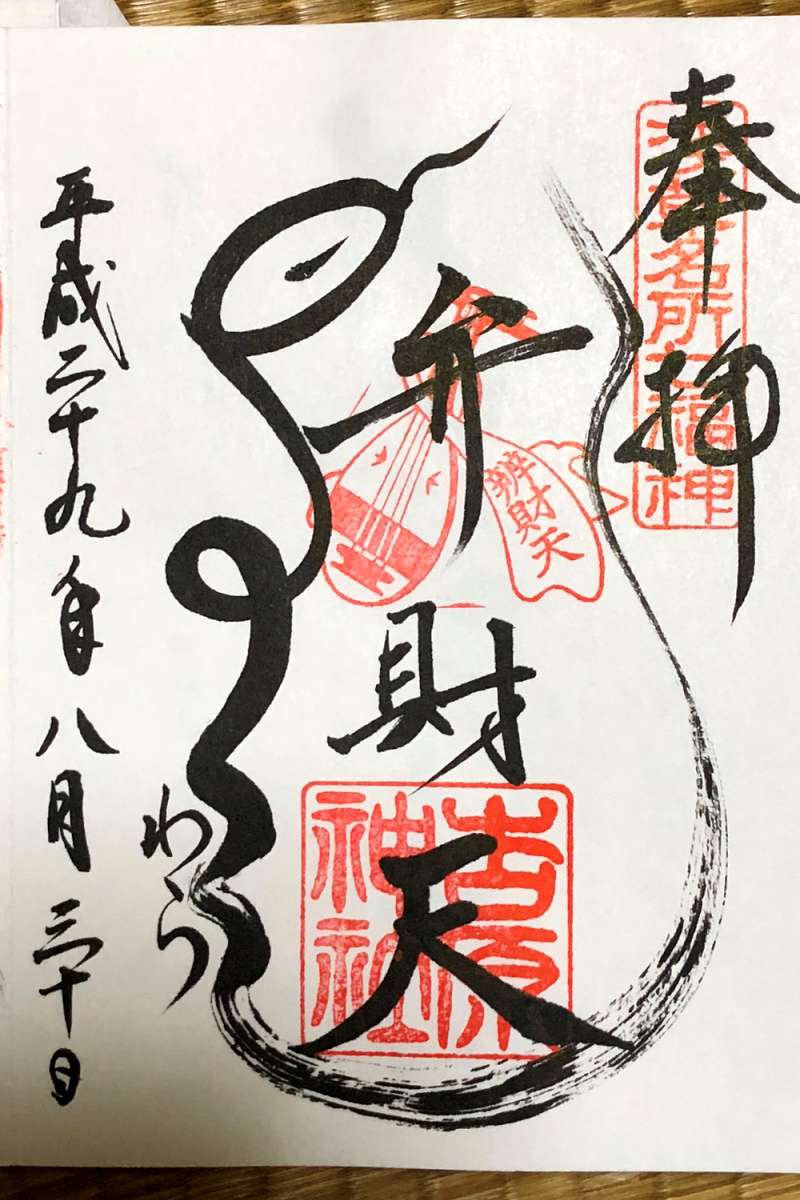 奉拝
浅草名所七福神
弁財天
辨財天
吉原
神社
わら
平成二十九年八月三十日